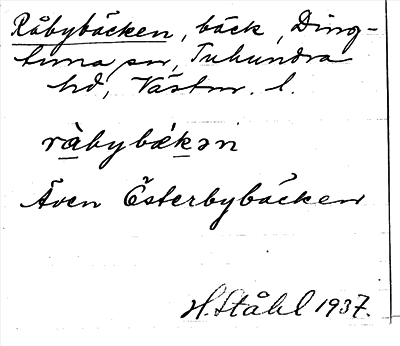 Råbybäcken, bäck, Ding-
tuna sn, Tuhundra
hd, Västm. l.
ràbybäkən
Även Österbybäcken
H. Ståhl 1937.